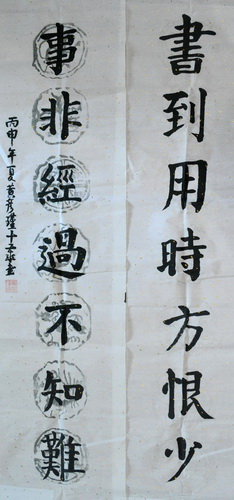 書到用時方恨少
事非經過不知難
丙申年夏